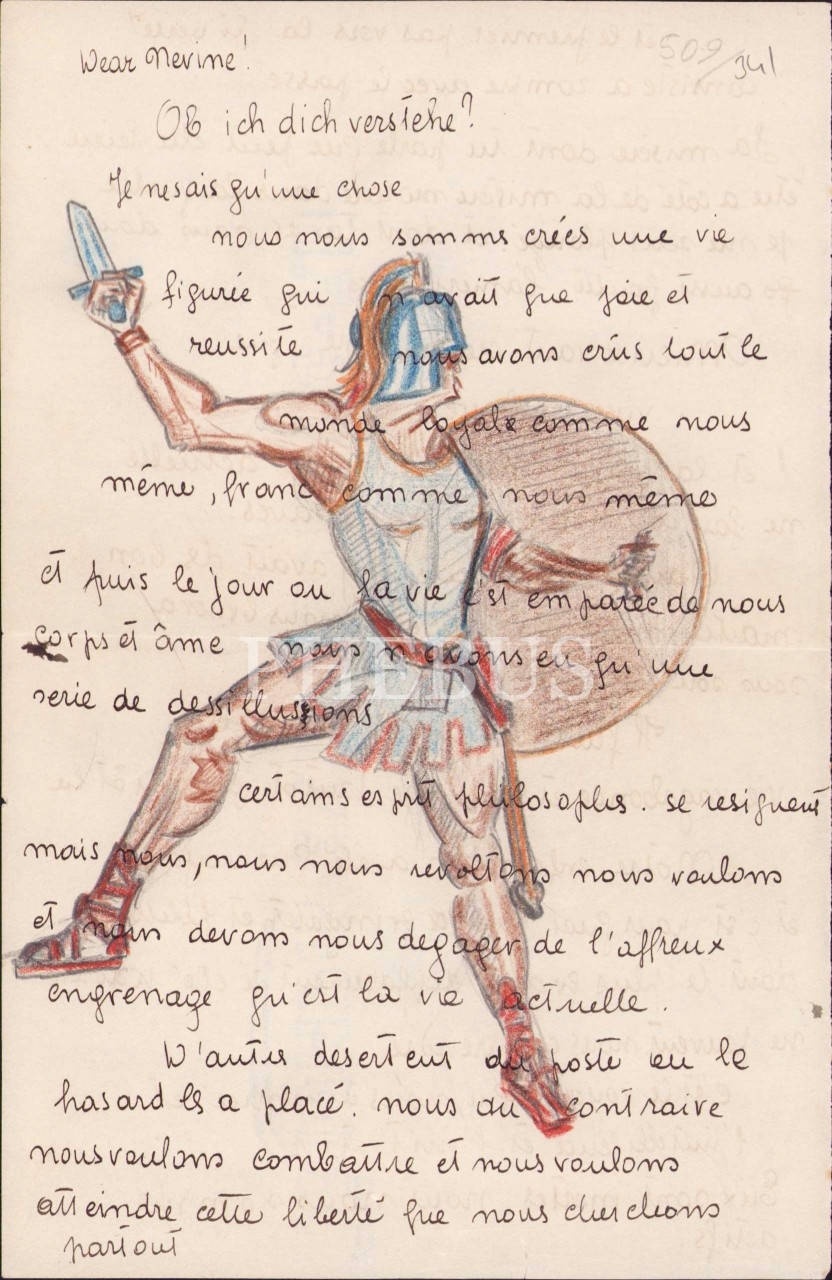 509/341
Dear Nevine!
Ob ich dich verstehe?
Je ne sais qu'une chose
nous nous somms créés une vie
figurée qui n'avait que joie et
reussite nous avons crûs tout le
monde loyale comme nous
même, franc comme nous même
et puis le jour ou la vie c'est emparéé de nous
corps et âme nous n'avons eu qu'une
serie de dessillussions
certains esprit philosophs. se resignent
mais nous, nous nous revoltons nous voulons
et nous devons nous degager de l'affreux
engrenage qu'est la vie actuelle.
D'autrs desertent du poste ou le
hasard ls a placé. nous au contraire
nous voulons combattre et nous voulons
atteindre cette liberté que nous cherchons
partout
PHEBUS